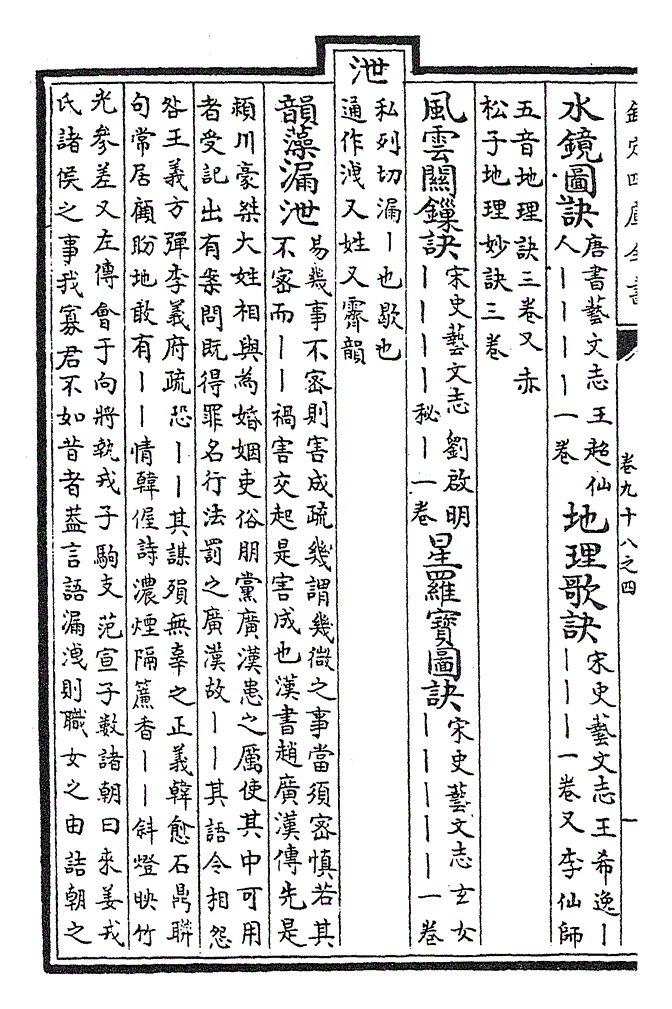 卷九十八之四
水鏡圖訣
唐書藝文志王超仙
人丨丨丨丨一卷
地理歌訣
宋史藝文志王希逸丨
丨丨丨一卷又李仙師
五音地理訣三卷又赤
松子地理妙訣三卷
風雲關鏁訣
宋史藝文志劉啟明
丨丨丨丨秘丨一卷
星羅寶圖訣
宋史藝文志玄女
丨丨丨丨丨一卷
泄
私列切漏丨也歇也
通作洩又姓又霽韻
韻藻漏泄
易幾事不密則害成疏幾謂幾微之事當須密慎若其
不密而丨丨禍害交起是害成也漢書趙廣漢傳先是
潁川豪桀大姓相與為婚姻吏俗朋黨廣漢患之厲使其中可用
者受記出有案問既得罪名行法罰之廣漢故丨丨其語令相怨
咎王義方彈李義府疏恐丨丨其謀殞無辜之正義韓愈石鼎聯
句常居顧盼地敢有丨丨情韓偓詩濃煙隔簾香丨丨斜燈映竹
光參差又左傳會于向將執戎子駒支范宣子數諸朝曰來姜戎
氏諸侯之事我寡君不如昔者葢言語漏洩則職女之由詰朝之